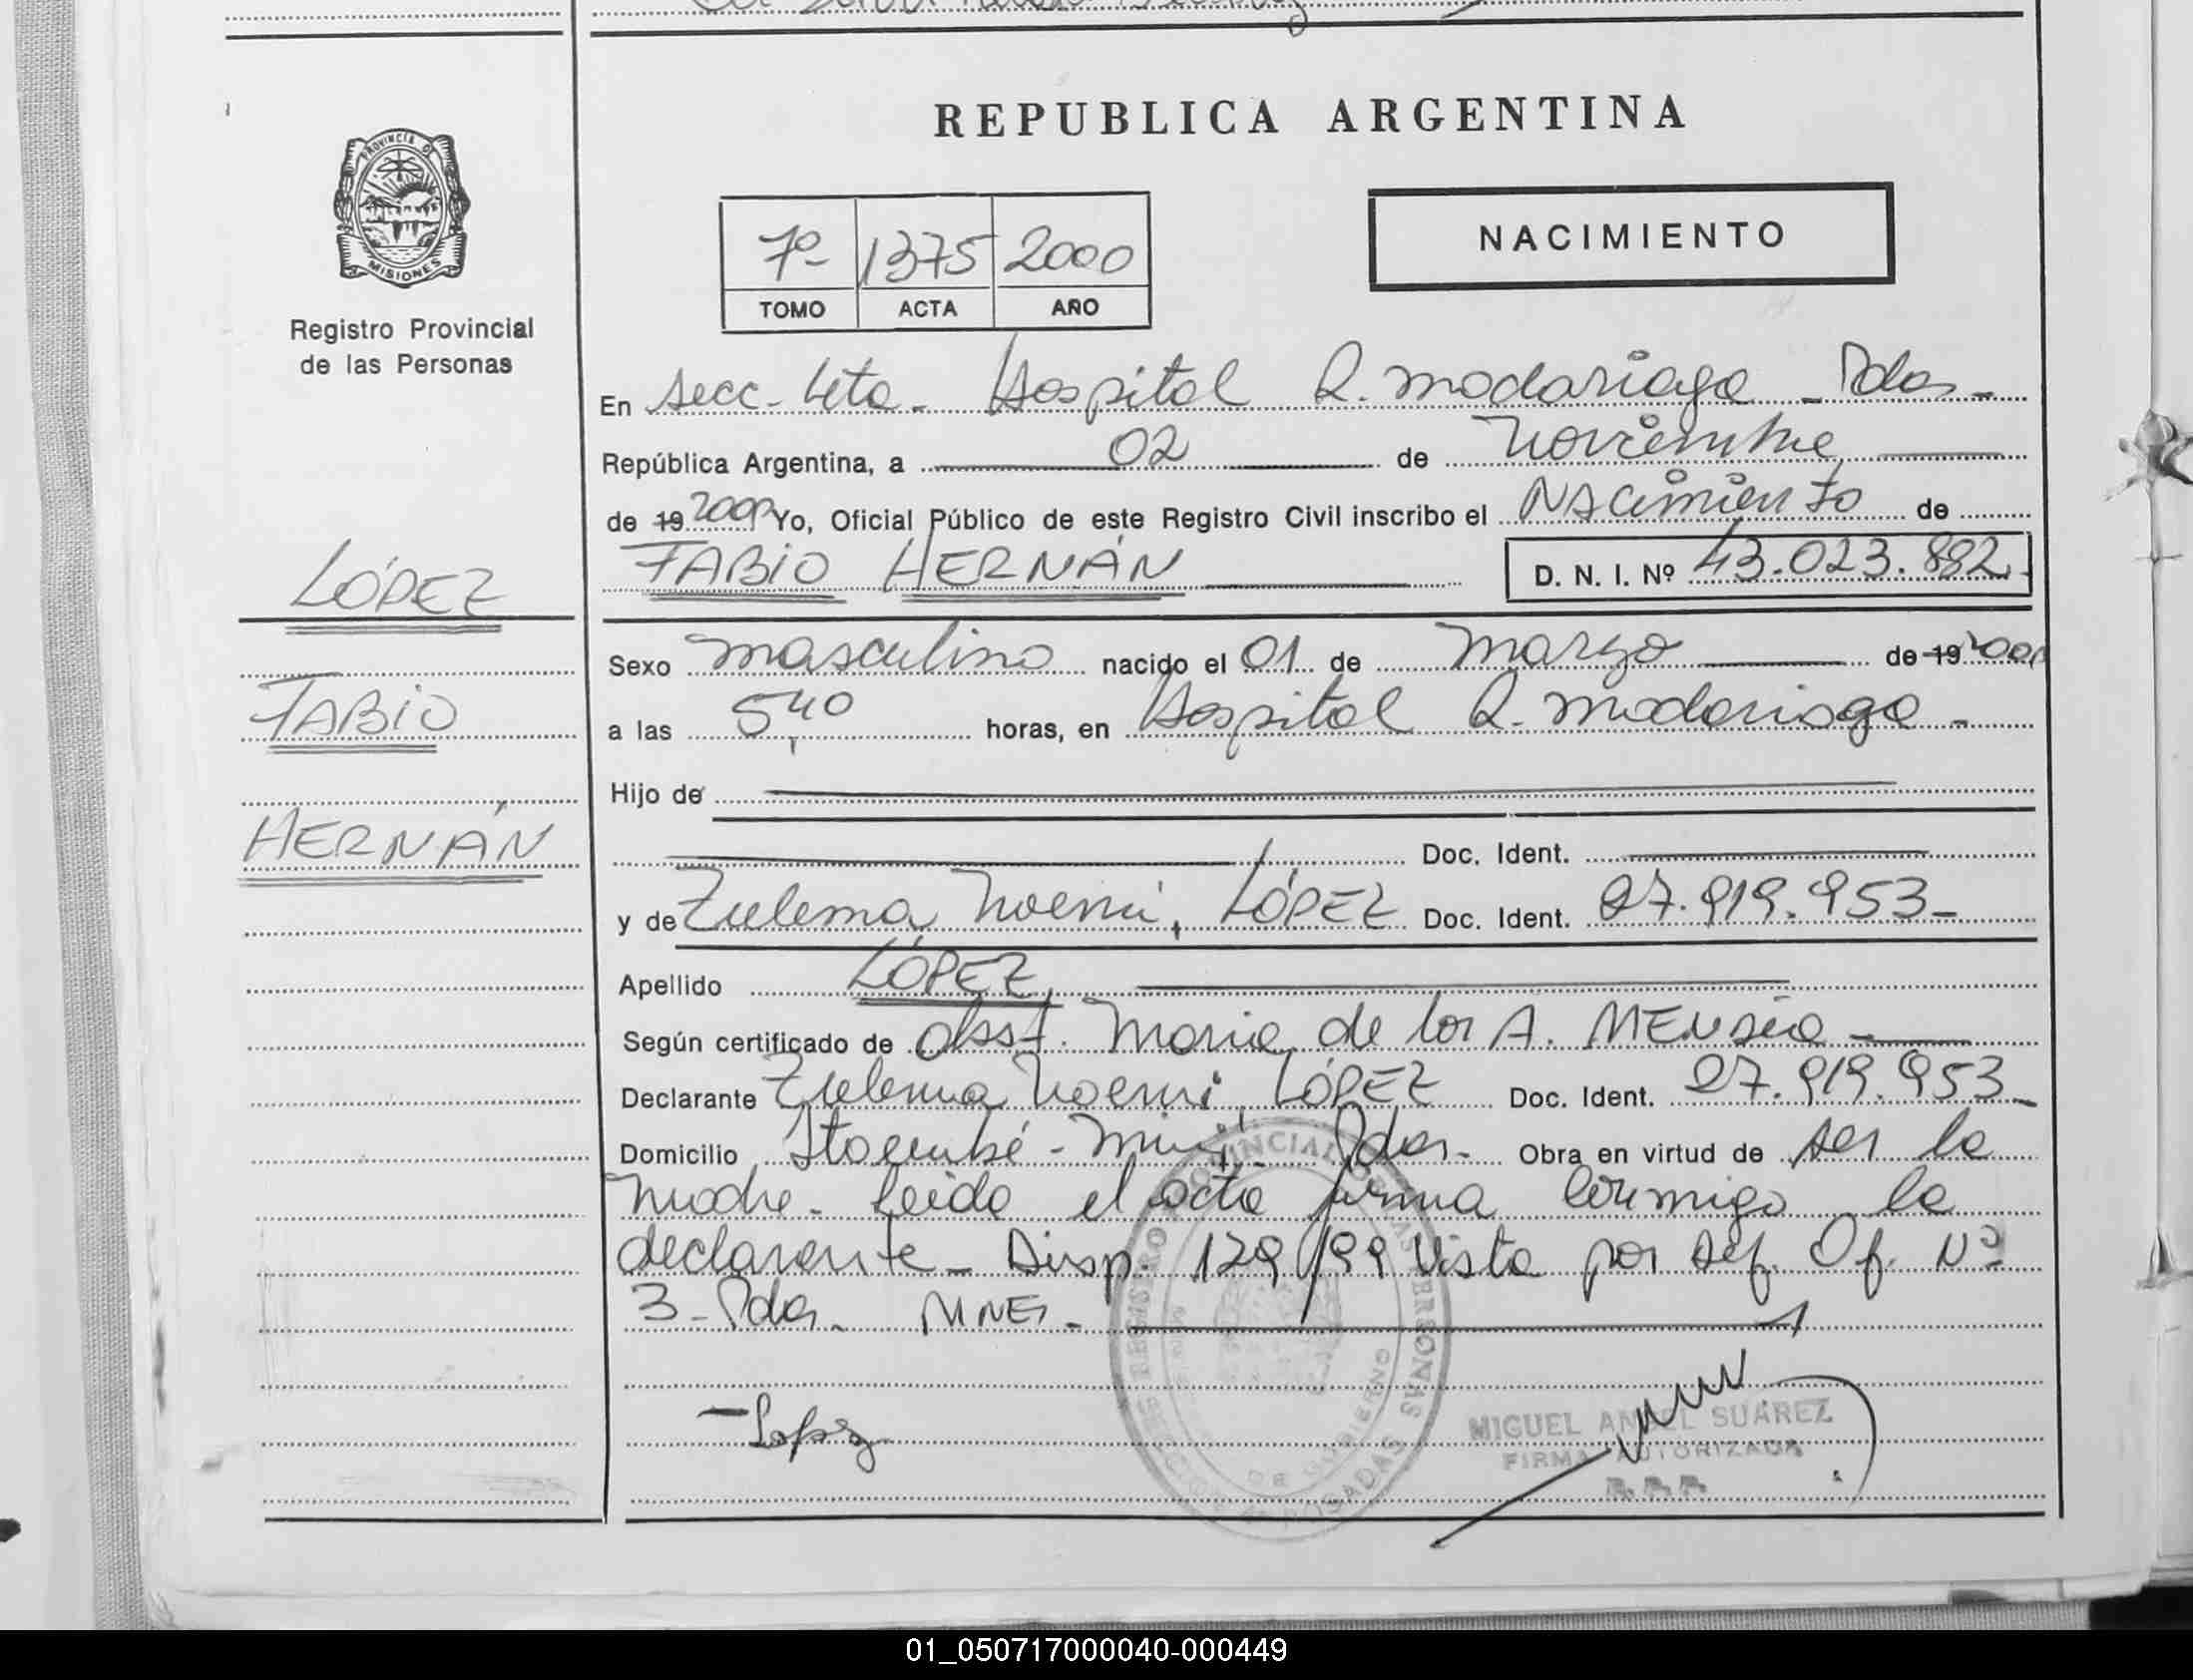 REPUBLICA ARGENTINA
PROVINCIA D
MISIONES
Registro Provincial
de las Personas
7º 1375 2000
TOMO ACTA AÑO
NACIMIENTO
En Secc. 4ta. Hospital R. Madariaga - Pdas -
República Argentina, a 02 de Noviembre
de 19 2000 Yo, Oficial Público de este Registro Civil inscribo el Nacimiento de
FABIO HERNÁN D. N. I. Nº 43.023.882.
LÓPEZ
FABIO
HERNÁN
Sexo masculino nacido el 01 de Marzo de 19 2000
a las 5,40 horas, en Hospital R. Madariaga -
Hijo de
Doc. Ident.
y de Zulema Noemi, LÓPEZ Doc. Ident. 27.919.953-
Apellido LÓPEZ
Según certificado de Obst. Maria de los A. MENsia -
Declarante Zulema Noemi, LÓPEZ Doc. Ident. 27.919.953-
Domicilio Itaembé - Miní - Pdas. Obra en virtud de ser la
madre. Leida el acta firma conmigo la
declarante - Disp. 129/99 Vista por Def. Of. Nº
3 - Pdas. MNES -
Lopez
REGISTRO PROVINCIAL DE LAS PERSONAS
SECCION 4ª POSADAS
DE GOBIERNO
MIGUEL ANGEL SUAREZ
FIRMA AUTORIZADA
R.P.P.
01_050717000040-000449